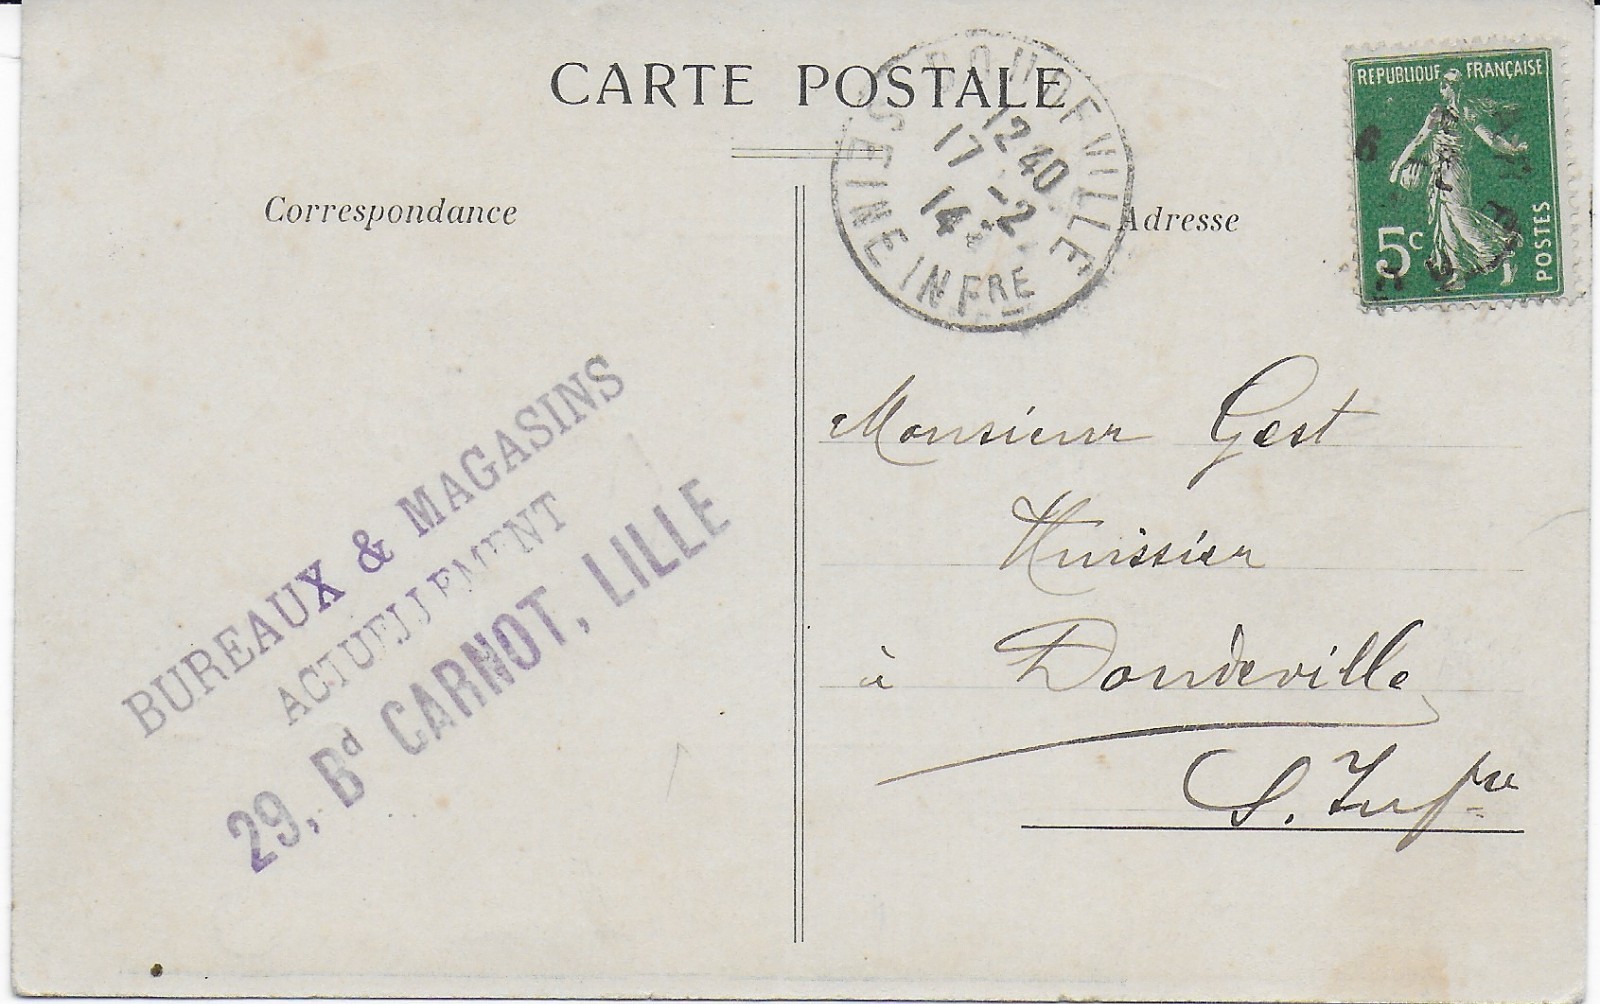 CARTE POSTALE
Correspondance
Adresse
DOUDEVILLE
12 40
17 -2
14
SEINE INFRE
REPUBLIQUE FRANÇAISE
5c
POSTES
BUREAUX & MAGASINS
ACTUELLEMENT
29, Bd CARNOT, LILLE
Monsieur Gest
Huissier
à Doudeville
S. Infre